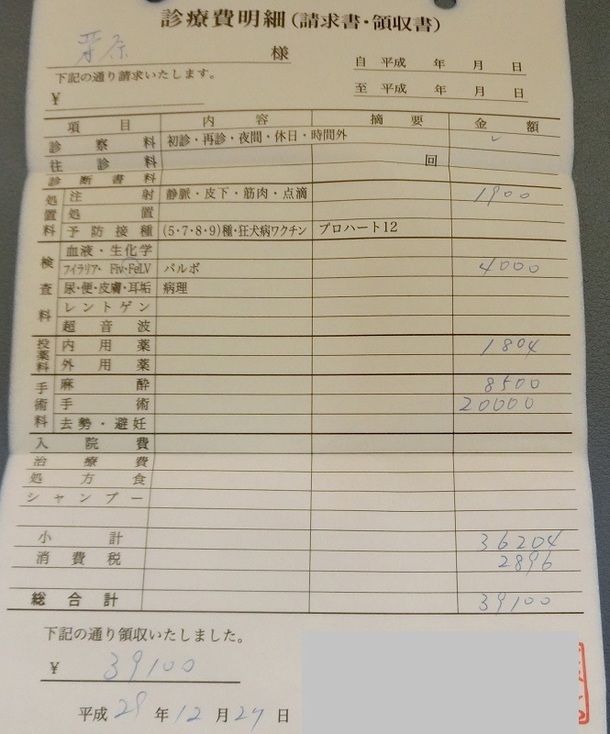 診療費明細(請求書・領収書)
様
自 平成 年 月 日
下記の通り請求いたします。
至 平成 年 月 日
¥
項目 内容 摘要 金額
診察料 初診・再診・夜間・休日・時間外
往診料 回
診断書料
処置料 注射 静脈・皮下・筋肉・点滴 1900
処置
予防接種 (5・7・8・9)種・狂犬病ワクチン プロハート12
検査料 血液・生化学
フィラリア・Fiv・FeLV パルボ 4000
尿・便・皮膚・耳垢 病理
レントゲン
超音波
投薬料 内用薬 1804
外用薬
手術料 麻酔 8500
手術 20000
去勢・避妊
入院費
治療費
処方食
シャンプー
小計 36204
消費税 2896
総合計 39100
下記の通り領収いたしました。
¥ 39100
平成 29 年 12 月 27 日